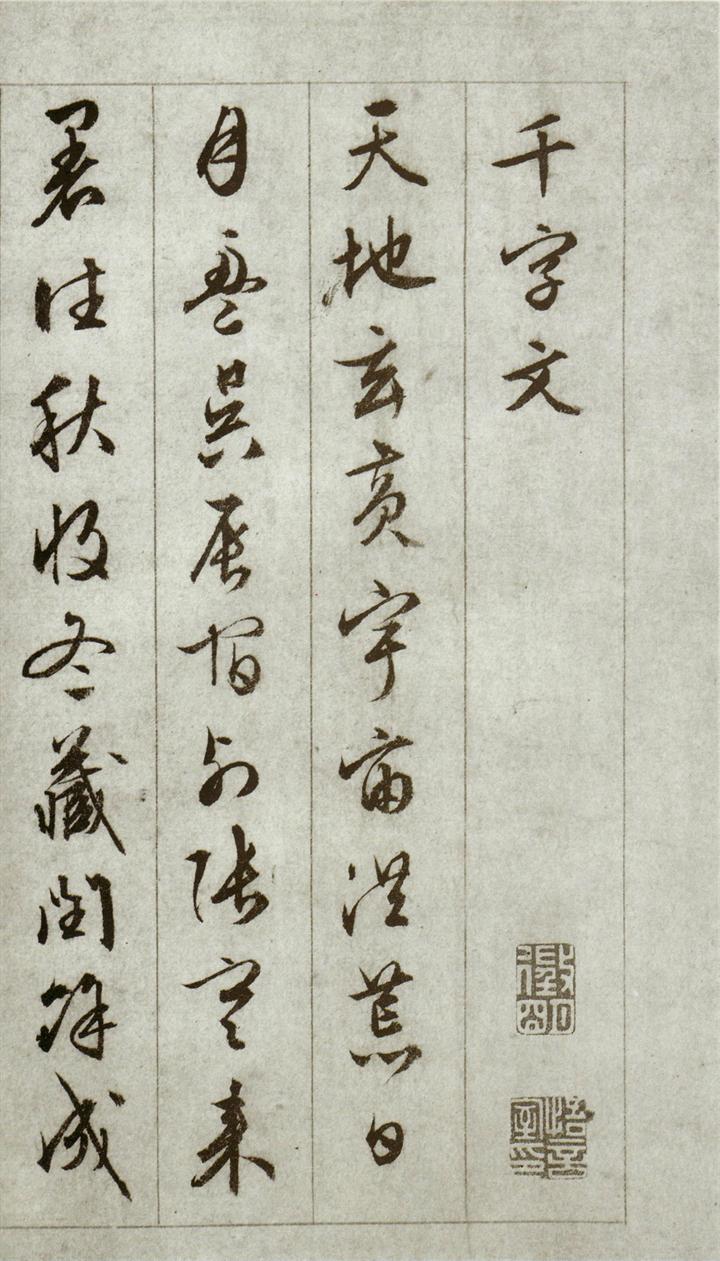 千字文
徵明
悟言室印
天地玄黃宇宙洪荒日
月盈昃辰宿列張寒來
暑往秋收冬藏閏餘成